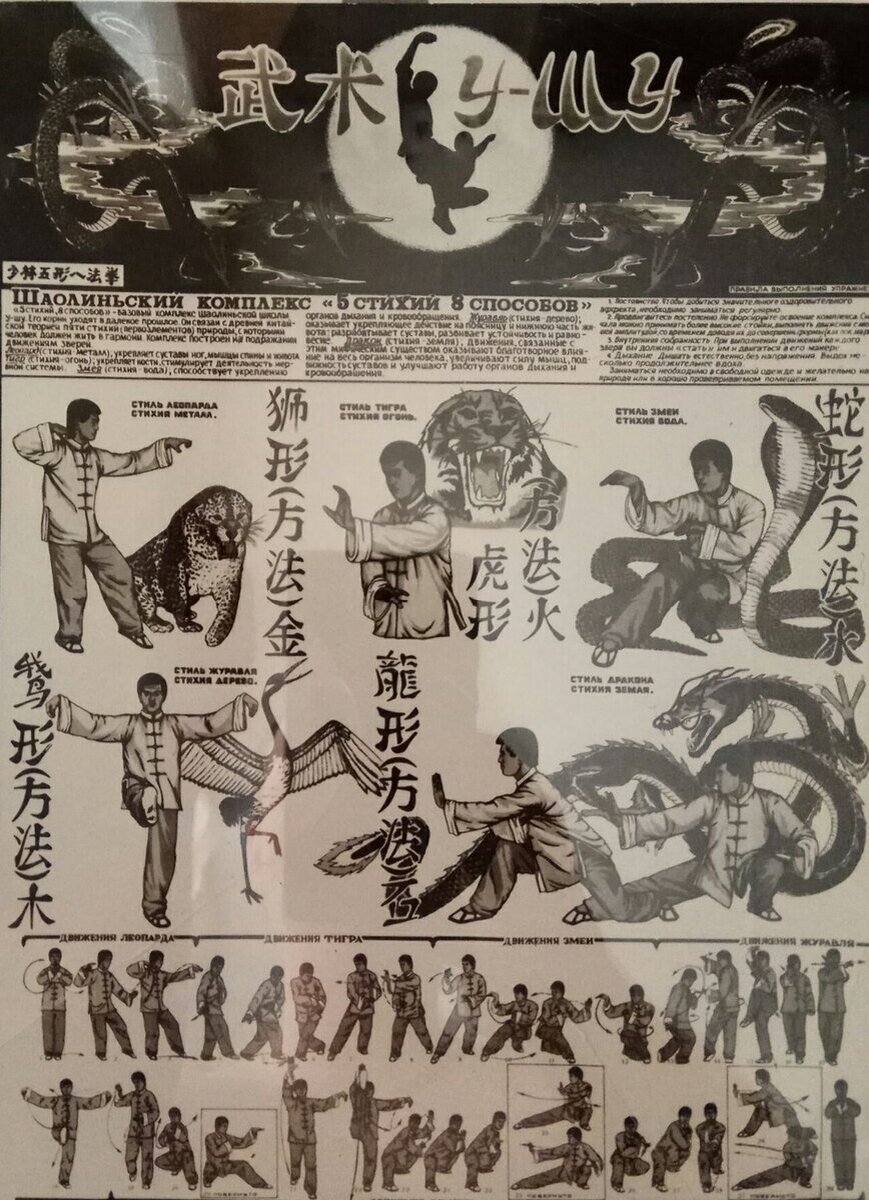 武术 У-ШУ
少林五形八法拳
ПРАВИЛА ВЫПОЛНЕНИЯ УПРАЖНЕ
ШАОЛИНЬСКИЙ КОМПЛЕКС «5 СТИХИЙ 8 СПОСОБОВ»
«5 СТИХИЙ, 8 СПОСОБОВ» - базовый комплекс Шаолиньской школы
у-шу. Его корни уходят в далекое прошлое. Он связан с древней китай-
ской теорией пяти стихий (первоэлементов) природы, с которыми
человек должен жить в гармонии. Комплекс построен на подражании
движениям зверей.
Леопард (стихия - металл), укрепляет суставы ног, мышцы спины и живота
Тигр (стихия - огонь); укрепляет кости, стимулирует деятельность нер-
вной системы. Змея (стихия - вода), способствует укреплению
органов дыхания и кровообращения. Журавль (стихия - дерево);
оказывает укрепляющее действие на поясницу и нижнюю часть жи-
вота; разрабатывает суставы, развивает устойчивость и равно-
весие. Дракон (стихия - земля), движения, связанные с
этим мифическим существом оказывают благотворное влия-
ние на весь организм человека, увеличивают силу мышц, под-
вижность суставов и улучшают работу органов дыхания и
кровообращения.
1. Постоянство. Чтобы добиться значительного оздоровительного
эффекта, необходимо заниматься регулярно.
2. Продвигайтесь постепенно. Не форсируйте освоение комплекса. Сн
чала можно принимать более высокие стойки, выполнять движения с мень
3. Внутренняя собранность. При выполнении движений каждого
зверя вы должны «стать» им и двигаться в его манере.
4. Дыхание. Дышать естественно, без напряжения. Выдох не-
сколько продолжительнее вдоха.
Заниматься необходимо в свободной одежде и желательно на
природе или в хорошо проветриваемом помещении.
СТИЛЬ ЛЕОПАРДА
СТИХИЯ МЕТАЛЛ.
狮形(方法)金
СТИЛЬ ТИГРА
СТИХИЯ ОГОНЬ.
虎形
(方法)火
СТИЛЬ ЗМЕИ
СТИХИЯ ВОДА.
蛇形(方法)水
形(方法)木
СТИЛЬ ЖУРАВЛЯ
СТИХИЯ ДЕРЕВО.
龍形(方法)
СТИЛЬ ДРАКОНА
СТИХИЯ ЗЕМЛЯ.
ДВИЖЕНИЯ ЛЕОПАРДА
ДВИЖЕНИЯ ТИГРА
ДВИЖЕНИЯ ЗМЕИ
ДВИЖЕНИЯ ЖУРАВЛЯ